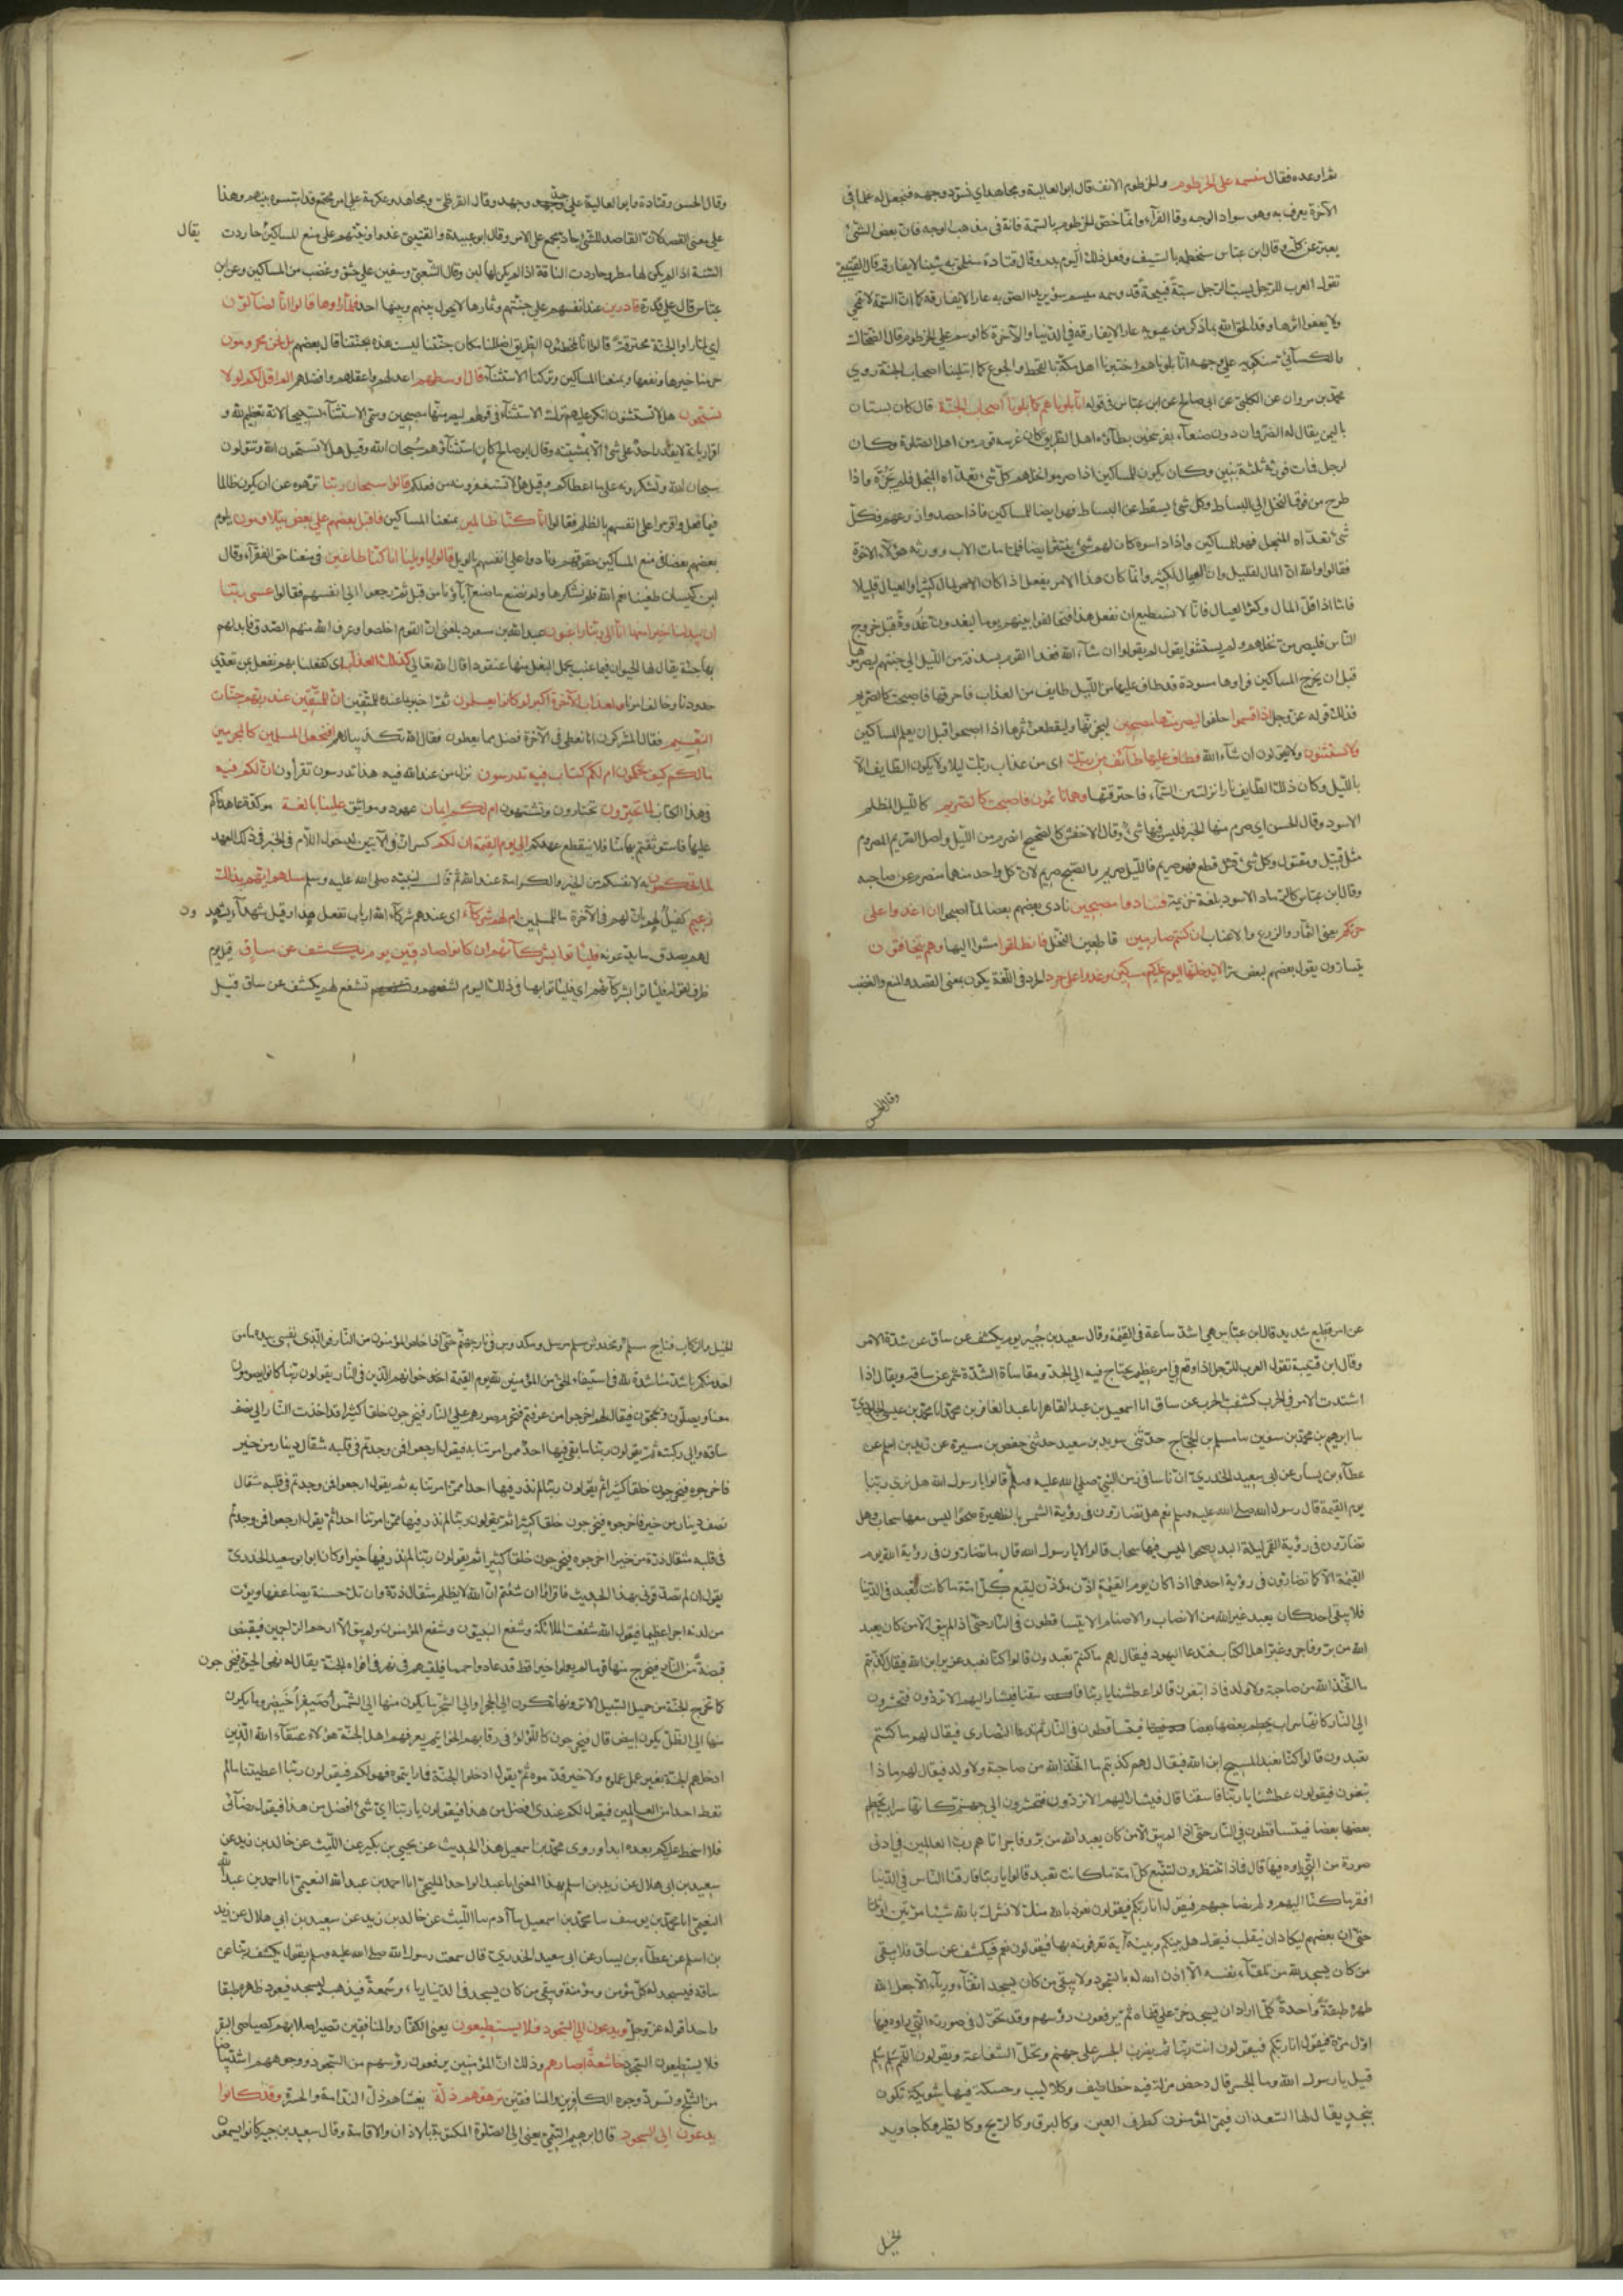 ثم اوعده فقال سنسمه على الخرطوم والخرطوم الانف قال ابو العالية ومجاهد اي نسود وجهه فنجعل له علما في
الآخرة يعرف به وهو سواد الوجه وقال الفرآء وانما خص الخرطوم بالسمة فانه في مذهب الوجه فان بعض الشئ
يعبر عن كله وقال ابن عباس سنخطمه بالسيف وفعل ذلك اليوم بدر وقال قتادة سنلحق به شيئا لا يفارقه قال القتيبي
تقول العرب للرجل يسب الرجل سبة قبيحة قد وسمه ميسم سوء يريد الصق به عارا لا يفارقه كما ان السمة لا تمحى
ولا يعفو اثرها وقد الحق الله بما ذكر من عيوبه عارا لا يفارقه في الدنيا والآخرة كالوسم على الخرطوم وقال الضحاك
والكسائي سنكويه على وجهه انا بلوناهم اختبرنا اهل مكة بالقحط والجوع كما ابتلينا اصحاب الجنة روي
محمد بن مروان عن الكلبي عن ابي صالح عن ابن عباس في قوله انا بلوناهم كما بلونا اصحاب الجنة قال كان بستان
باليمن يقال له الضروان دون صنعآء بفرسخين يطأوه اهل الطريق كان غرسه قوم من اهل الصلوة وكان
لرجل فمات فورثه ثلثة بنين وكان يكون للمساكين اذا صرموا نخلهم كل شئ تعداه المنجل فلم يجزه واذا
طرح من فوق النخل الى البساط وكل شئ يسقط عن البساط فهو ايضا للمساكين فاذا حصدوا زرعهم فكل
شئ تعداه المنجل فهو للمساكين واذا داسوه كان لهم كل شئ ينتثر ايضا فلما مات الاب وورثه هؤلآء الاخوة
فقالوا والله ان المال لقليل وان العيال لكثير وانما كان هذا الامر يفعل اذا كان الامر والمال كثيرا والعيال قليلا
فاما اذا قل المال وكثر العيال فانا لا نستطيع ان نفعل هذا فتحالفوا بينهم يوما ليغدون غدوة قبل خروج
الناس فليصرمن نخلهم ولم يستثنوا يقول لم يقولوا ان شآء الله فغدا القوم بسدفة من الليل الى جنتهم ليصرموها
قبل ان يخرج المساكين فراوها مسودة قد طاف عليها من الليل طايف من العذاب فاحرقها فاصبحت كالصريم
فذلك قوله عز وجل اذ اقسموا حلفوا ليصرمنها مصبحين ليجزنها وليقطعن ثمرها اذا اصبحوا قبل ان يعلم المساكين
ولا يستثنون ولا يقولون ان شآء الله فطاف عليها طآئف من ربك اي من عذاب ربك ليلا ولا يكون الطايف الا
بالليل وكان ذلك الطايف نارا نزلت من السمآء فاحترقتها وهم نائمون فاصبحت كالصريم كالليل المظلم
الاسود وقال الحسن اي صرم منها الخير فليس فيها شئ وقال الاخفش كالصبح انصرم من الليل واصل الصريم المصروم
مثل قتيل ومقتول وكل شئ قطع فهو صريم فالليل صريم والصبح صريم لان كل واحد منهما منصرم عن صاحبه
وقال ابن عباس كالرماد الاسود بلغة خزيمة فتنادوا مصبحين نادى بعضهم بعضا لما اصبحوا ان اغدوا على
حرثكم يعني الثمار والزرع والاعناب ان كنتم صارمين قاطعين النخل فانطلقوا مشوا اليها وهم يتخافتون
يتسارون يقول بعضهم لبعض سرا لا يدخلنها اليوم عليكم مسكين وغدوا على حرد الحرد في اللغة يكون بمعنى القصد والمنع والغضب
وقال الحسن
وقال الحسن وقتادة وابو العالية على جد وجهد وقال القرظي ومجاهد وعكرمة على امر مجتمع قد اسسوه بينهم وهذا
على معنى القصد لان القاصد للشئ جاد مجمع على الامر وقال ابو عبيدة والقتيبي غدوا ونيتهم على منع المساكين حاردت يقال
السنة اذا لم يكن لها مطر وحاردت الناقة اذا لم يكن لها لبن وقال الشعبي وسفين على حنق وغضب من المساكين وعن ابن
عباس قال على قدرة قادرين عند انفسهم على جنتهم وثمارها لا يحول بينهم وبينها احد فلما راوها قالوا انا لضآلون
اي لما راوا الجنة محترقة قالوا انا لمخطئون الطريق اضللنا مكان جنتنا ليست هذه بجنتنا قال بعضهم بل نحن محرومون
حرمنا خيرها ونفعها بمنعنا المساكين وتركنا الاستثناء قال اوسطهم اعدلهم واعقلهم وافضلهم الم اقل لكم لولا
تسبحون هلا تستثنون انكر عليهم ترك الاستثنآء في قولهم ليصرمنها مصبحين وسمى الاستثنآء تسبيحا لانه تعظيم لله و
اقرار بانه لا يقدر احد على شئ الا بمشيئته وقال ابو صالح كان استثنآؤهم سبحان الله وقيل هلا تسبحون الله وتقولون
سبحان الله وتشكرونه على ما اعطاكم وقيل هلا تستغفرونه من فعلكم قالوا سبحان ربنا نزهوه عن ان يكون ظالما
فيما فعل واقروا على انفسهم بالظلم فقالوا انا كنا ظالمين بمنعنا المساكين فاقبل بعضهم على بعض يتلاومون يلوم
بعضهم بعضا في منع المساكين حقوقهم ونادوا على انفسهم بالويل قالوا يا ويلنا انا كنا طاغين في منعنا حق الفقرآء وقال
ابن كيسان طغينا نعم الله فلم نشكرها ولم نصنع ما صنع آباؤنا من قبل ثم رجعوا الى انفسهم فقالوا عسى ربنا
ان يبدلنا خيرا منها انا الى ربنا راغبون عبد الله بن مسعود بلغني ان القوم اخلصوا وعرف الله منهم الصدق فابدلهم
بها جنة يقال لها الحيوان فيها عنب يحمل البغل منها عنقودا قال الله تعالى كذلك العذاب اي كفعلنا بهم نفعل بمن تعدى
حدودنا وخالف امرنا ولعذاب الآخرة اكبر لو كانوا يعلمون ثم اخبر ما عنده للمتقين ان للمتقين عند ربهم جنات
النعيم فقال المشركون انا نعطى في الآخرة افضل مما يعطون فقال الله تكذيبا لهم افنجعل المسلمين كالمجرمين
ما لكم كيف تحكمون ام لكم كتاب فيه تدرسون نزل من عند الله فيه هذا تدرسون تقرأون ان لكم فيه
في هذا الكتاب لما تخيرون تختارون وتشتهون ام لكم ايمان عهود ومواثيق علينا بالغة موكدة عاهدناكم
عليها فاستوثقتم بها منا فلا ينقطع عهدكم الى يوم القيمة ان لكم كسر ان في الآيتين لدخول اللام في الخبر في ذلك العهد
لما تحكمون به لانفسكم من الخير والكرامة عند الله ثم قال لنبيه صلى الله عليه وسلم سلهم ايهم بذلك
زعيم كفيل لهم بان لهم في الآخرة ما للمسلمين ام لهم شركآء اي عندهم شركآء الله ارباب تفعل هذا وقيل شهدآء يشهدون
لهم بصدق ما يدعونه فلياتوا بشركآئهم ان كانوا صادقين يوم يكشف عن ساق قيل يوم
ظرف لقوله فلياتوا بشركآئهم اي فلياتوا بها في ذلك اليوم لتنفعهم وتشفع لهم يكشف عن ساق قيل
عن امر فظيع شديد قال ابن عباس هي اشد ساعة في القيمة وقال سعيد بن جبير يوم يكشف عن ساق عن شدة الامر
وقال ابن قتيبة تقول العرب للرجل اذا وقع في امر عظيم يحتاج فيه الى الجد ومقاساة الشدة شمر عن ساقه ويقال اذا
اشتدت الامر في الحرب كشفت الحرب عن ساق انا اسمعيل بن عبد القاهر انا عبد الغافر بن محمد انا محمد بن عيسى الجلودي
سا ابرهيم بن محمد بن سفين سا مسلم بن الحجاج حدثني سويد بن سعيد حدثني حفص بن ميسرة عن زيد بن اسلم عن
عطآء بن يسار عن ابي سعيد الخدري ان ناسا في زمن النبي صلى الله عليه وسلم قالوا يا رسول الله هل نرى ربنا
يوم القيمة قال رسول الله صلى الله عليه وسلم نعم هل تضارون في رؤية الشمس بالظهيرة صحوا ليس معها سحاب وهل
تضارون في رؤية القمر ليلة البدر صحوا ليس فيها سحاب قالوا لا يا رسول الله قال ما تضارون في رؤية الله يوم
القيمة الا كما تضارون في رؤية احدهما اذا كان يوم القيمة اذن مؤذن ليتبع كل امة ما كانت تعبد في الدنيا
فلا يبقى احد كان يعبد غير الله من الانصاب والاصنام الا يتساقطون في النار حتى اذا لم يبق الا من كان يعبد
الله من بر وفاجر وغبر اهل الكتاب فتدعا اليهود فيقال لهم ما كنتم تعبدون قالوا كنا نعبد عزير ابن الله فيقال كذبتم
ما اتخذ الله من صاحبة ولا ولد فاذا تبغون قالوا عطشنا يا ربنا فاسقنا فيشار اليهم الا تردون فيحشرون
الى النار كانها سراب يحطم بعضها بعضا فيتساقطون في النار ثم تدعا النصارى فيقال لهم ما كنتم
تعبدون قالوا كنا نعبد المسيح ابن الله فيقال لهم كذبتم ما اتخذ الله من صاحبة ولا ولد فيقال لهم ماذا
تبغون فيقولون عطشنا يا ربنا فاسقنا قال فيشار اليهم الا تردون فيحشرون الى جهنم كانها سراب يحطم
بعضها بعضا فيتساقطون في النار حتى اذا لم يبق الا من كان يعبد الله من بر وفاجر اتاهم رب العالمين في ادنى
صورة من التي راوه فيها قال فماذا تنتظرون لتتبع كل امة ما كانت تعبد قالوا يا ربنا فارقنا الناس في الدنيا
افقر ما كنا اليهم ولم نصاحبهم فيقول انا ربكم فيقولون نعوذ بالله منك لا نشرك بالله شيئا مرتين او ثلاثا
حتى ان بعضهم ليكاد ان ينقلب فيقول هل بينكم وبينه آية تعرفونه بها فيقولون نعم فيكشف عن ساق فلا يبقى
من كان يسجد لله من تلقآء نفسه الا اذن الله له بالسجود ولا يبقى من كان يسجد اتقآء وريآء الا جعل الله
ظهره طبقة واحدة كلما اراد ان يسجد خر على قفاه ثم يرفعون رؤسهم وقد تحول في صورته التي راوه فيها
اول مرة فيقول انا ربكم فيقولون انت ربنا ثم يضرب الجسر على جهنم وتحل الشفاعة ويقولون اللهم سلم سلم
قيل يا رسول الله وما الجسر قال دحض مزلة فيه خطاطيف وكلاليب وحسكة فيها شويكة تكون
بنجد يقال لها السعدان فيمر المؤمنون كطرف العين وكالبرق وكالريح وكالطير وكاجاويد
الخيل
الخيل والركاب فناج مسلم ومخدوش مرسل ومكدوس في نار جهنم حتى اذا خلص المؤمنون من النار فوالذي نفسي بيده ما من
احد منكم باشد مناشدة لله في استيفاء الحق من المؤمنين لله يوم القيمة لاخوانهم الذين في النار يقولون ربنا كانوا يصومون
معنا ويصلون ويحجون فيقال لهم اخرجوا من عرفتم فتحرم صورهم على النار فيخرجون خلقا كثيرا قد اخذت النار الى نصف
ساقه والى ركبته ثم يقولون ربنا ما بقي فيها احد ممن امرتنا به فيقول ارجعوا فمن وجدتم في قلبه مثقال دينار من خير
فاخرجوه فيخرجون خلقا كثيرا ثم يقولون ربنا لم نذر فيها احدا ممن امرتنا به ثم يقول ارجعوا فمن وجدتم في قلبه مثقال
نصف دينار من خير فاخرجوه فيخرجون خلقا كثيرا ثم يقولون ربنا لم نذر فيها ممن امرتنا احدا ثم يقول ارجعوا فمن وجدتم
في قلبه مثقال ذرة من خير اخرجوه فيخرجون خلقا كثيرا ثم يقولون ربنا لم نذر فيها خيرا وكان ابو سعيد الخدري
يقول ان لم تصدقوني بهذا الحديث فاقرؤا ان شئتم ان الله لا يظلم مثقال ذرة وان تك حسنة يضاعفها ويؤت
من لدنه اجرا عظيما فيقول الله شفعت الملائكة وشفع النبيون وشفع المؤمنون ولم يبق الا ارحم الراحمين فيقبض
قبضة من النار فيخرج منها قوما لم يعملوا خيرا قط قد عادوا حمما فيلقيهم في نهر في افواه الجنة يقال له نهر الحيوة فيخرجون
كما تخرج الحبة من حميل السيل الا ترونها تكون الى الحجر او الى الشجر ما يكون منها الى الشمس اصيفر اخيضر وما يكون
منها الى الظل يكون ابيض قال فيخرجون كاللؤلؤ في رقابهم الخواتيم يعرفهم اهل الجنة هؤلاء عتقآء الله الذين
ادخلهم الجنة بغير عمل عملوه ولا خير قدموه ثم يقول ادخلوا الجنة فما رايتموه فهو لكم فيقولون ربنا اعطيتنا ما لم
تعط احدا من العالمين فيقول لكم عندي افضل من هذا فيقولون يا ربنا اي شئ افضل من هذا فيقول رضآئي
فلا اسخط عليكم بعده ابدا وروى محمد بن اسمعيل هذا الحديث عن يحيى بن بكير عن الليث عن خالد بن يزيد عن
سعيد بن ابي هلال عن زيد بن اسلم بهذا المعنى انا عبد الواحد المليحي انا احمد بن عبد الله النعيمي انا احمد بن عبد الله
النعيمي انا محمد بن يوسف سا محمد بن اسمعيل سا آدم سا الليث عن خالد بن يزيد عن سعيد بن ابي هلال عن زيد
بن اسلم عن عطآء بن يسار عن ابي سعيد الخدري قال سمعت رسول الله صلى الله عليه وسلم يقول يكشف ربنا عن
ساقه فيسجد له كل مؤمن ومؤمنة ويبقى من كان يسجد في الدنيا ريآء وسمعة فيذهب ليسجد فيعود ظهره طبقا
واحدا قوله عز وجل ويدعون الى السجود فلا يستطيعون يعني الكفار والمنافقين تصير اصلابهم كصياصي البقر
فلا يستطيعون السجود خاشعة ابصارهم وذلك ان المؤمنين يرفعون رؤسهم من السجود ووجوههم اشد بياضا
من الثلج وتسود وجوه الكافرين والمنافقين ترهقهم ذلة يغشاهم ذل الندامة والحسرة وقد كانوا
يدعون الى السجود قال ابرهيم التيمي يعني الى الصلوة المكتوبة بالاذان والاقامة وقال سعيد بن جبير كانوا يسمعون